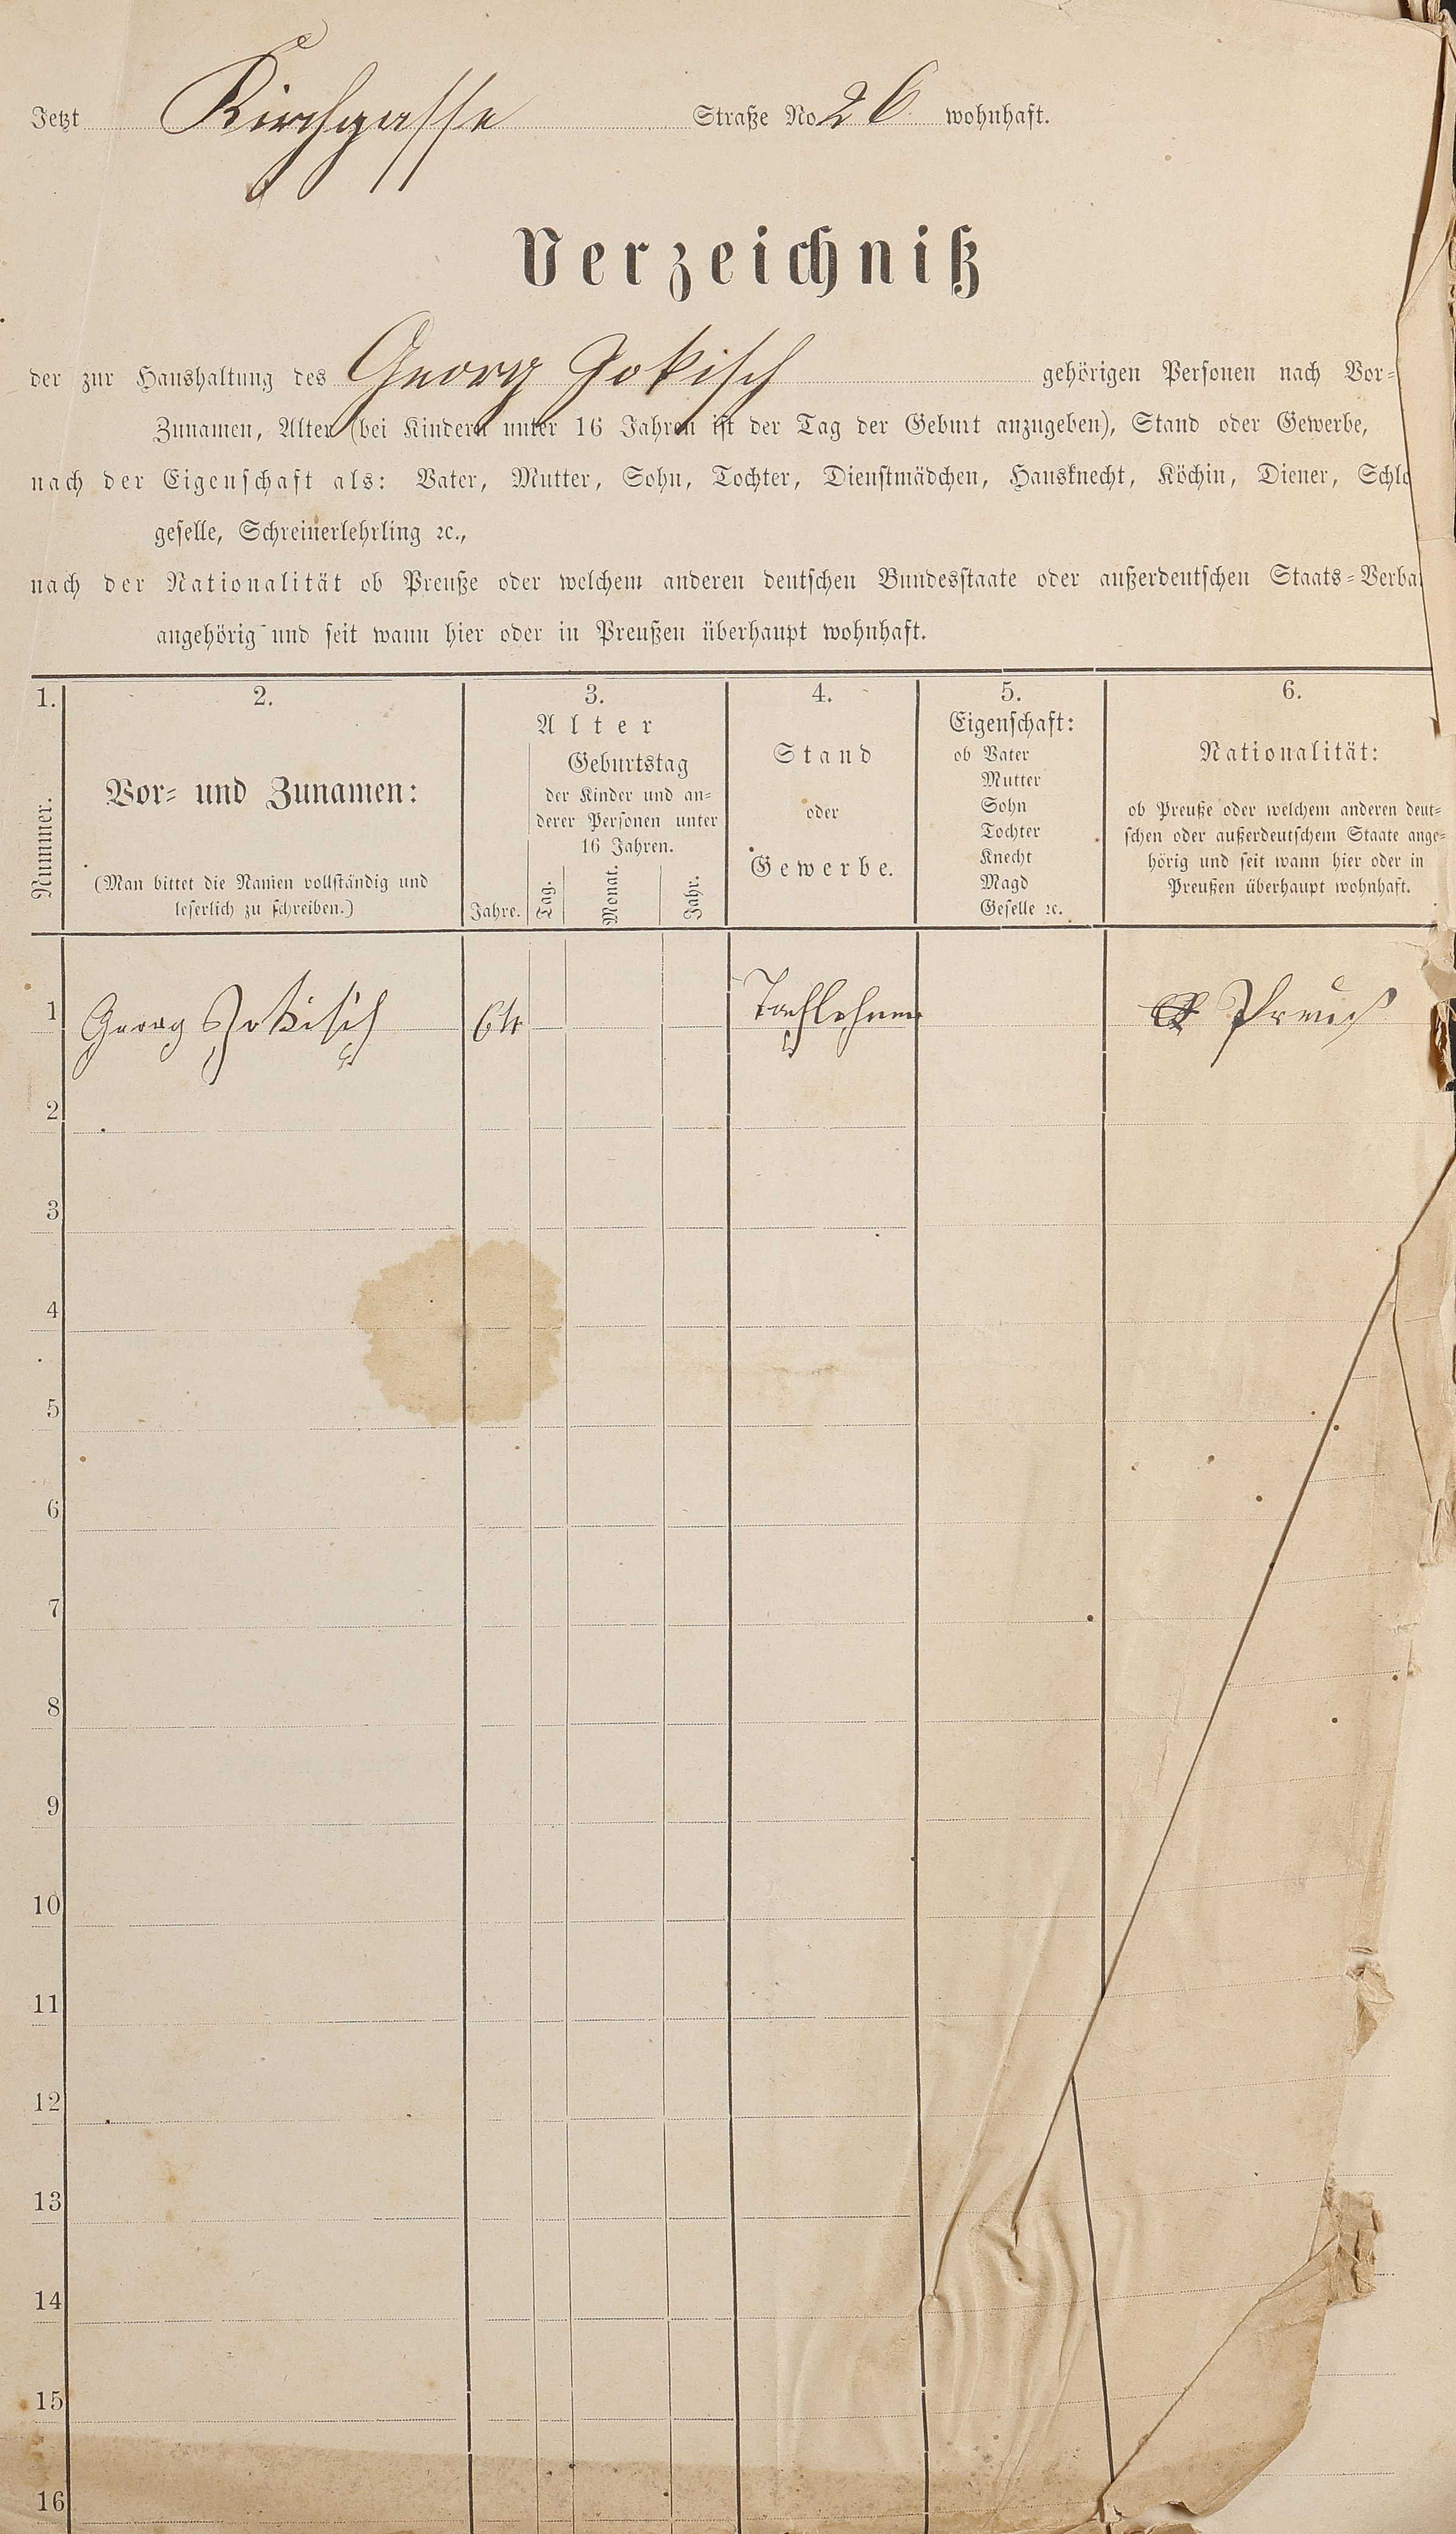 Jetzt Kirchgasse Straße No 26 wohnhaft.
Verzeichniß
der zur Haushaltung des Georg Jokisch gehörigen Personen nach Vor-
Zunamen, Alter (bei Kindern unter 16 Jahren ist der Tag der Geburt anzugeben), Stand oder Gewerbe,
nach der Eigenschaft als: Vater, Mutter, Sohn, Tochter, Dienstmädchen, Hausknecht, Köchin, Diener, Schlo
geselle, Schreinerlehrling ꝛc.,
nach der Nationalität ob Preuße oder welchem anderen deutschen Bundesstaate oder außerdeutschen Staats-Verba
angehörig und seit wann hier oder in Preußen überhaupt wohnhaft.
1.
Nummer.
2.
Vor- und Zunamen:
(Man bittet die Namen vollständig und
leserlich zu schreiben.)
3.
Alter
Geburtstag
der Kinder und an-
derer Personen unter
16 Jahren.
Jahre. Tag. Monat. Jahr.
4.
Stand
oder
Gewerbe.
5.
Eigenschaft:
ob Vater
Mutter
Sohn
Tochter
Knecht
Magd
Geselle ꝛc.
6.
Nationalität:
ob Preuße oder welchem anderen deut-
schen oder außerdeutschem Staate ange-
hörig und seit wann hier oder in
Preußen überhaupt wohnhaft.
1 Georg Jokisch 64 Preuß
2
3
4
5
6
7
8
9
10
11
12
13
14
15
16